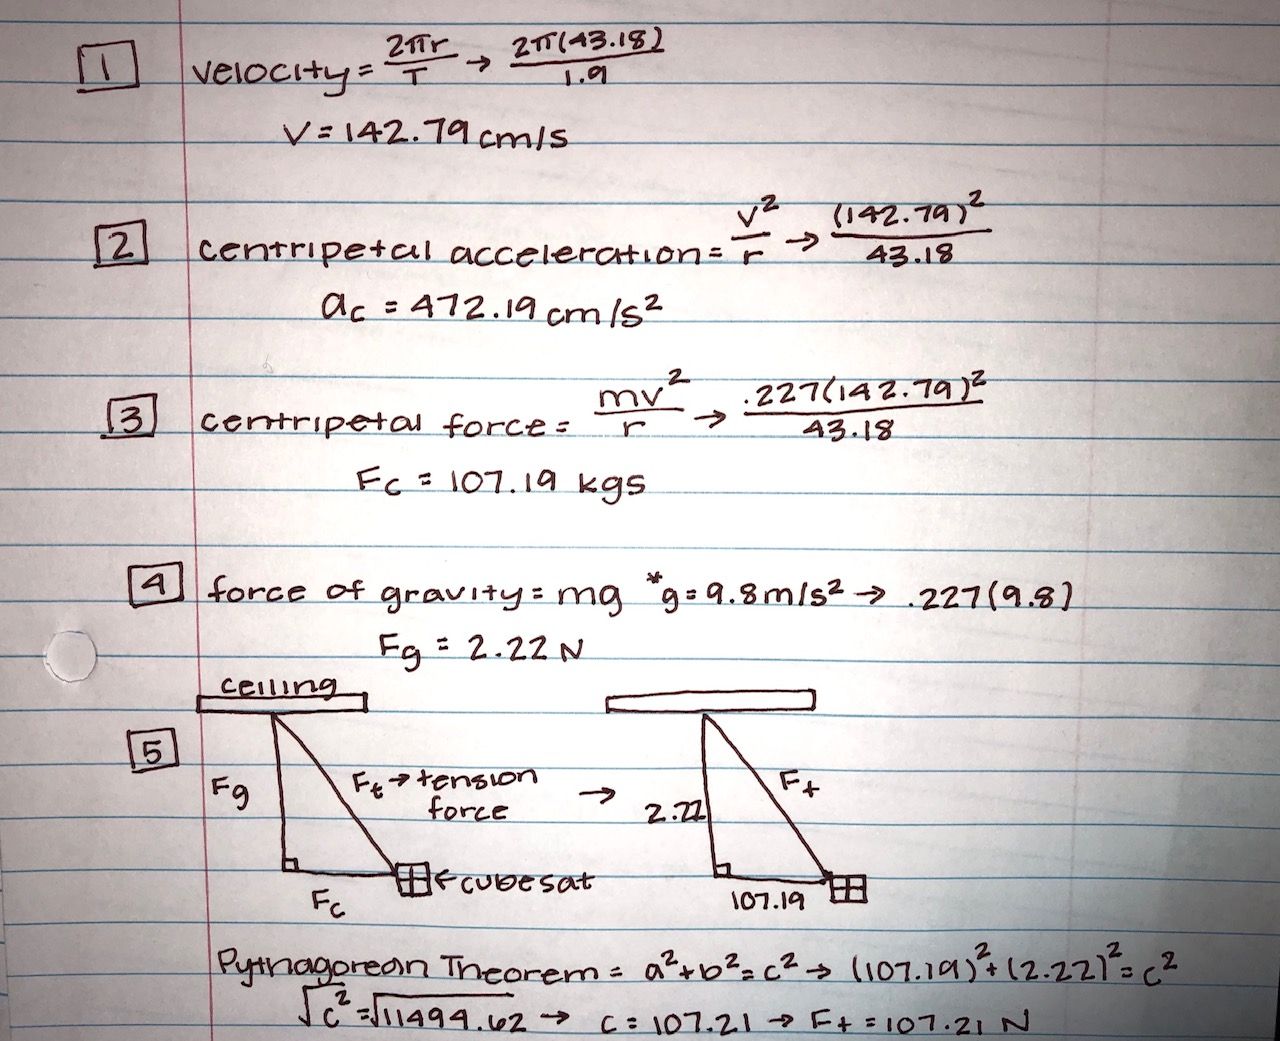 1 velocity = 2πr/T → 2π(43.18)/1.9
V = 142.79 cm/s
2 centripetal acceleration = v²/r → (142.79)²/43.18
ac = 472.19 cm/s²
3 centripetal force = mv²/r → .227(142.79)²/43.18
Fc = 107.19 kgs
4 force of gravity = mg *g = 9.8 m/s² → .227(9.8)
Fg = 2.22 N
ceiling
5
Fg Ft → tension force →
Fc ← cubesat
2.22 Ft
107.19
Pythagorean Theorem = a² + b² = c² → (107.19)² + (2.22)² = c²
√c² = √11494.62 → c = 107.21 → Ft = 107.21 N